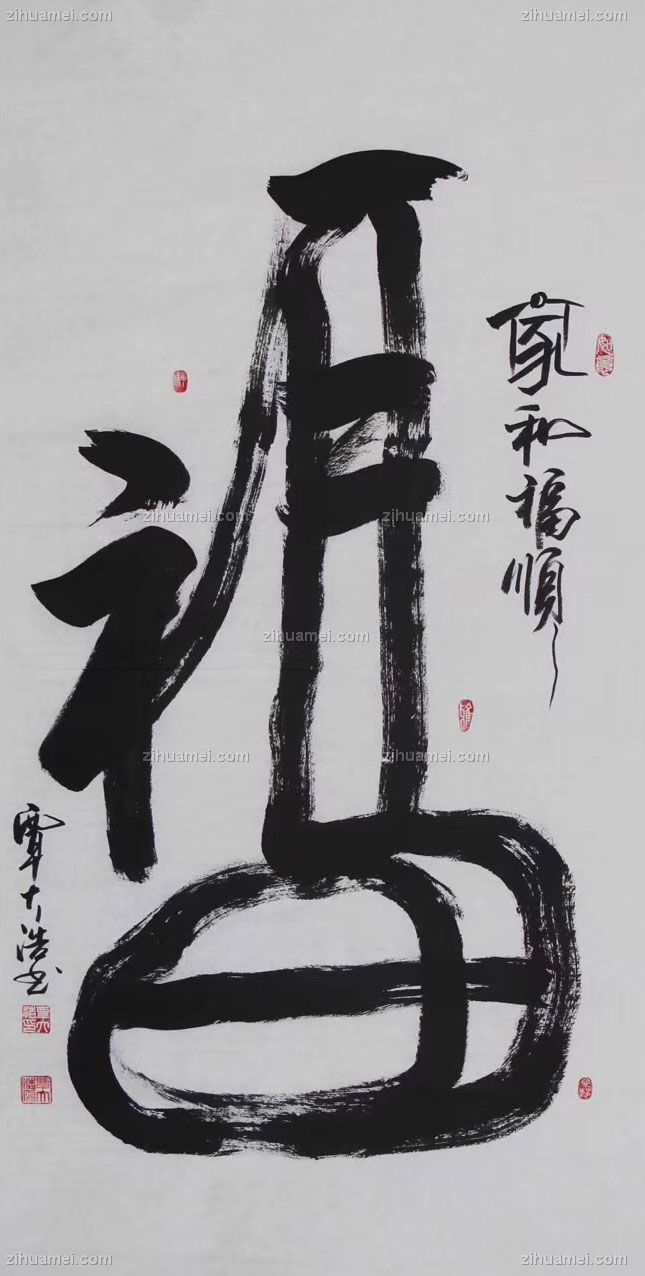 zihuamei.com
zihuamei.com
家和福順
福
zihuamei.com
zihuamei.com
zihuamei.com
zihuamei.com
zihuamei.com
覃大浩书
zihuamei.com
zihuamei.com